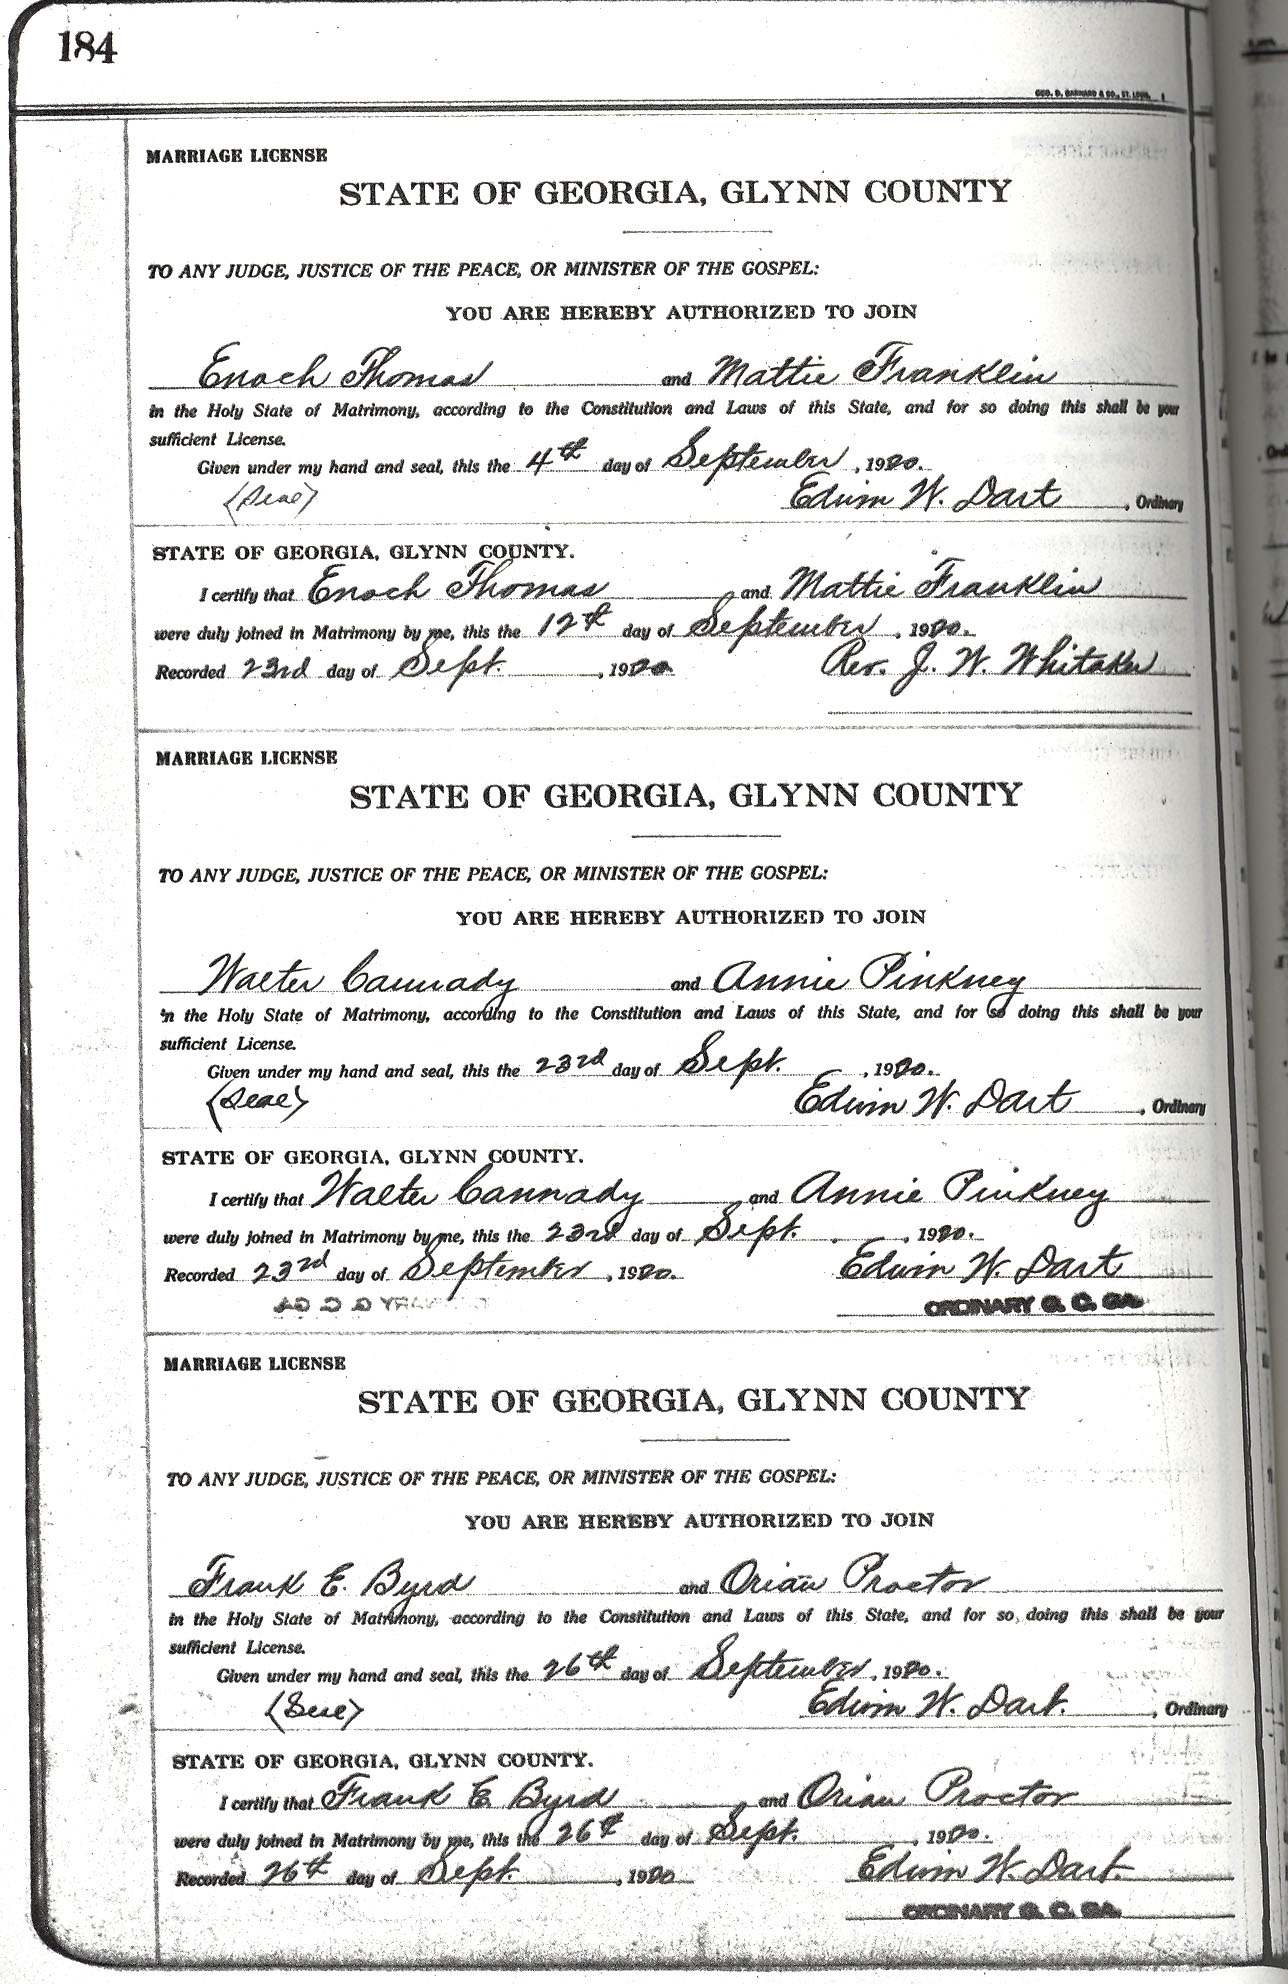 184
GEO. D. BARNARD & CO., ST. LOUIS.
MARRIAGE LICENSE
STATE OF GEORGIA, GLYNN COUNTY
TO ANY JUDGE, JUSTICE OF THE PEACE, OR MINISTER OF THE GOSPEL:
YOU ARE HEREBY AUTHORIZED TO JOIN
Enoch Thomas and Mattie Franklin
in the Holy State of Matrimony, according to the Constitution and Laws of this State, and for so doing this shall be your
sufficient License.
Given under my hand and seal, this the 4th day of September, 1920.
(Seal) Edwin W. Dart, Ordinary
STATE OF GEORGIA, GLYNN COUNTY.
I certify that Enoch Thomas and Mattie Franklin
were duly joined in Matrimony by me, this the 12th day of September, 1920.
Recorded 23rd day of Sept., 1920 Rev. J. W. Whitaker
MARRIAGE LICENSE
STATE OF GEORGIA, GLYNN COUNTY
TO ANY JUDGE, JUSTICE OF THE PEACE, OR MINISTER OF THE GOSPEL:
YOU ARE HEREBY AUTHORIZED TO JOIN
Walter Cannady and Annie Pinkney
in the Holy State of Matrimony, according to the Constitution and Laws of this State, and for so doing this shall be your
sufficient License.
Given under my hand and seal, this the 23rd day of Sept., 1920.
(Seal) Edwin W. Dart, Ordinary
STATE OF GEORGIA, GLYNN COUNTY.
I certify that Walter Cannady and Annie Pinkney
were duly joined in Matrimony by me, this the 23rd day of Sept., 1920.
Recorded 23rd day of September, 1920. Edwin W. Dart
ORDINARY G. C. GA.
MARRIAGE LICENSE
STATE OF GEORGIA, GLYNN COUNTY
TO ANY JUDGE, JUSTICE OF THE PEACE, OR MINISTER OF THE GOSPEL:
YOU ARE HEREBY AUTHORIZED TO JOIN
Frank E. Byrd and Orian Proctor
in the Holy State of Matrimony, according to the Constitution and Laws of this State, and for so doing this shall be your
sufficient License.
Given under my hand and seal, this the 26th day of September, 1920.
(Seal) Edwin W. Dart., Ordinary
STATE OF GEORGIA, GLYNN COUNTY.
I certify that Frank E. Byrd and Orian Proctor
were duly joined in Matrimony by me, this the 26th day of Sept., 1920.
Recorded 26th day of Sept., 1920 Edwin W. Dart.
ORDINARY G. C. GA.